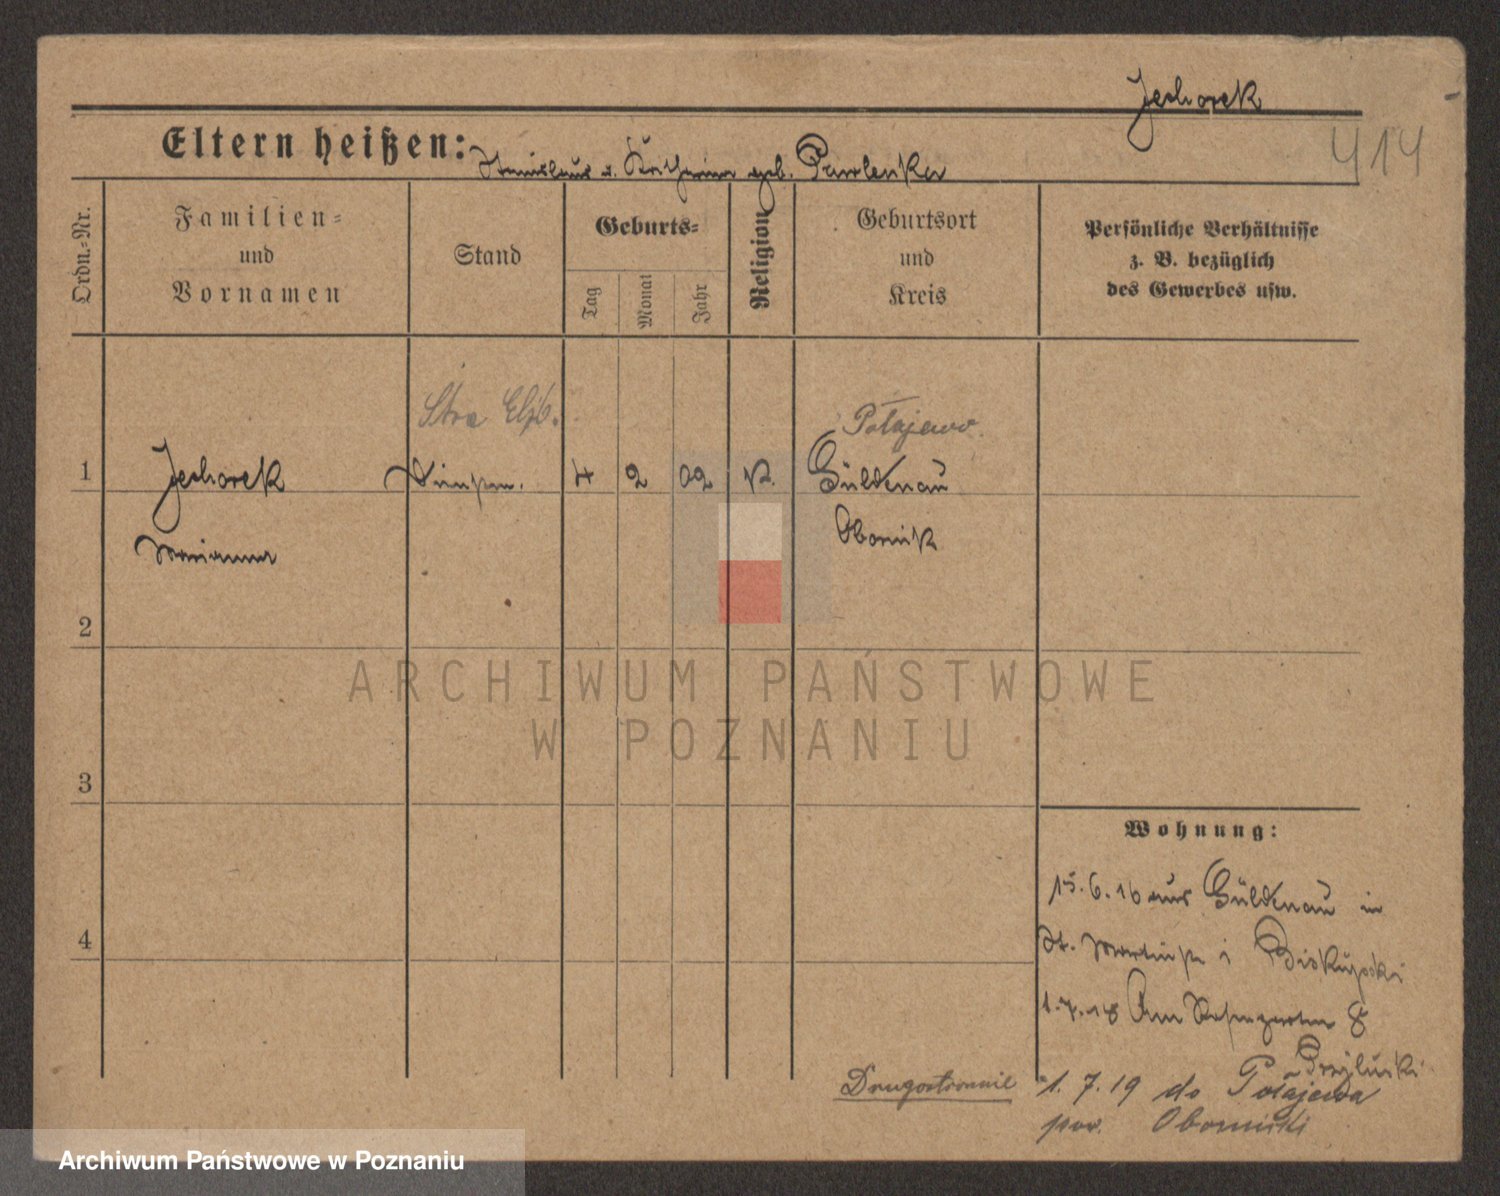 Jechorek
414
Eltern heißen: Stanislaus u. Katharina geb. Pawlenka
Ordn.=Nr.
Familien=
und
Vornamen
Stand
Geburts=
Tag
Monat
Jahr
Religion
Geburtsort
und
Kreis
Persönliche Verhältnisse
z. B. bezüglich
des Gewerbes usw.
Stra Elżb.
Połajewo
1
Jechorek
4 2 02 K.
Güldenau
Obornik
Marianna
2
ARCHIWUM PAŃSTWOWE
W POZNANIU
3
Wohnung:
15.6.16 aus Güldenau in
St. Martinstr
4
1.7.18 Am 8
Drugostronnie
1.7.19 do Połajewa
pow. Obornicki
Archiwum Państwowe w Poznaniu